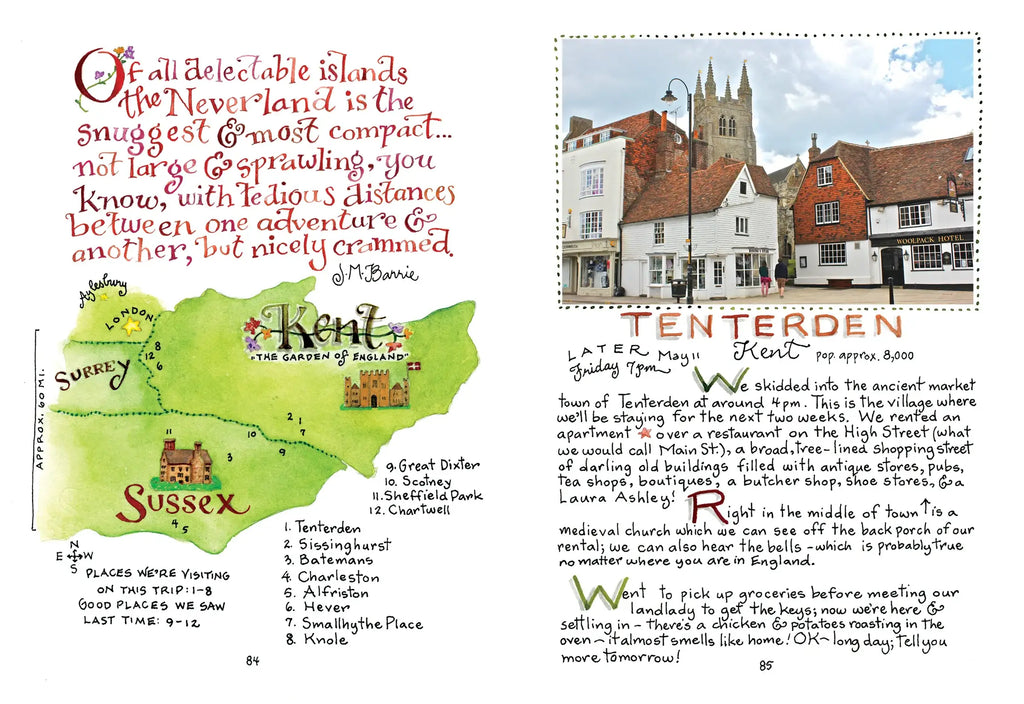 Of all delectable islands
the Neverland is the
snuggest & most compact...
not large & sprawling, you
know, with tedious distances
between one adventure &
another, but nicely crammed.
J. M. Barrie
Aylesbury
LONDON
SURREY
Kent
"THE GARDEN OF ENGLAND"
8
12
6
2 1
7
10
9
11
3
Sussex
4 5
APPROX. 60 MI.
N
E W
S
PLACES WE'RE VISITING
ON THIS TRIP: 1-8
GOOD PLACES WE SAW
LAST TIME: 9-12
1. Tenterden
2. Sissinghurst
3. Batemans
4. Charleston
5. Alfriston
6. Hever
7. Smallhythe Place
8. Knole
9. Great Dixter
10. Scotney
11. Sheffield Park
12. Chartwell
84
WOOLPACK HOTEL
TENTERDEN
Kent pop. approx. 8,000
LATER May 11
Friday 7pm
We skidded into the ancient market
town of Tenterden at around 4pm. This is the village where
we'll be staying for the next two weeks. We rented an
apartment over a restaurant on the High Street (what
we would call Main St.), a broad, tree-lined shopping street
of darling old buildings filled with antique stores, pubs,
tea shops, boutiques, a butcher shop, shoe stores, & a
Laura Ashley!
Right in the middle of town is a
medieval church which we can see off the back porch of our
rental; we can also hear the bells - which is probably true
no matter where you are in England.
Went to pick up groceries before meeting our
landlady to get the keys; now we're here &
settling in - there's a chicken & potatoes roasting in the
oven ~ it almost smells like home! OK~ long day; tell you
more tomorrow!
85